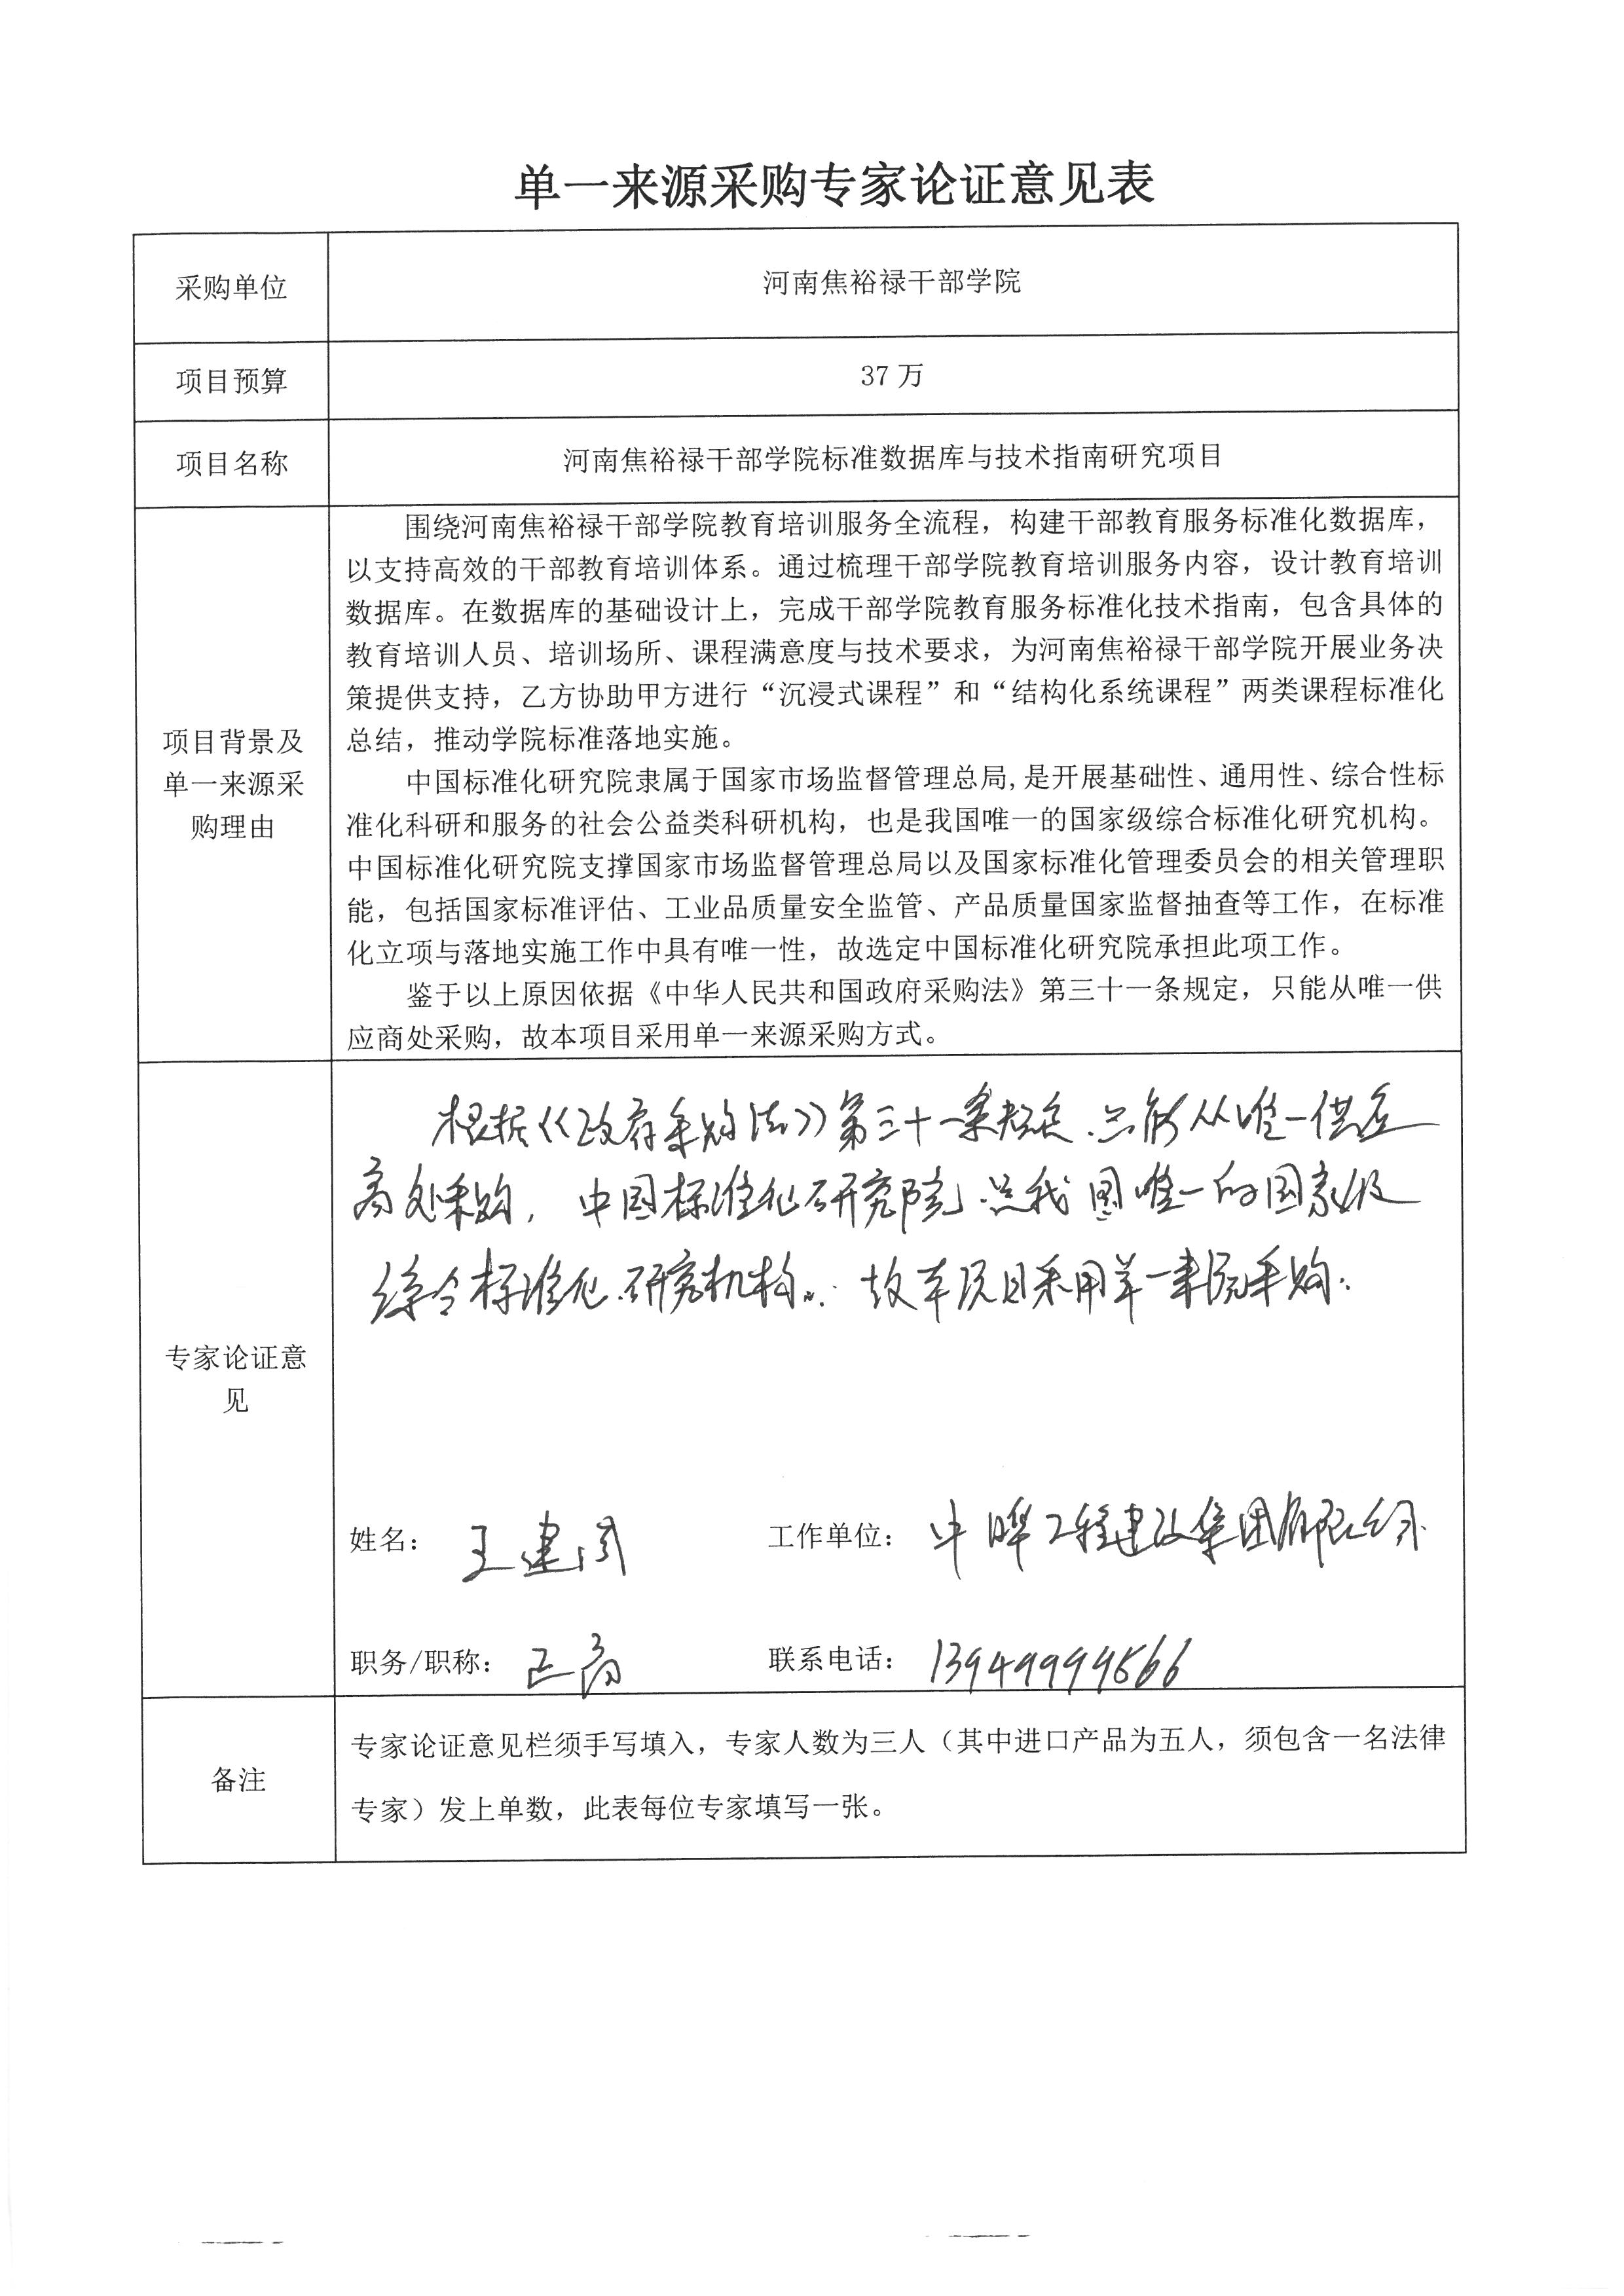 单一来源采购专家论证意见表
采购单位
河南焦裕禄干部学院
项目预算
37 万
项目名称
河南焦裕禄干部学院标准数据库与技术指南研究项目
项目背景及
单一来源采
购理由
围绕河南焦裕禄干部学院教育培训服务全流程，构建干部教育服务标准化数据库，
以支持高效的干部教育培训体系。通过梳理干部学院教育培训服务内容，设计教育培训
数据库。在数据库的基础设计上，完成干部学院教育服务标准化技术指南，包含具体的
教育培训人员、培训场所、课程满意度与技术要求，为河南焦裕禄干部学院开展业务决
策提供支持，乙方协助甲方进行“沉浸式课程”和“结构化系统课程”两类课程标准化
总结，推动学院标准落地实施。
中国标准化研究院隶属于国家市场监督管理总局,是开展基础性、通用性、综合性标
准化科研和服务的社会公益类科研机构，也是我国唯一的国家级综合标准化研究机构。
中国标准化研究院支撑国家市场监督管理总局以及国家标准化管理委员会的相关管理职
能，包括国家标准评估、工业品质量安全监管、产品质量国家监督抽查等工作，在标准
化立项与落地实施工作中具有唯一性，故选定中国标准化研究院承担此项工作。
鉴于以上原因依据《中华人民共和国政府采购法》第三十一条规定，只能从唯一供
应商处采购，故本项目采用单一来源采购方式。
专家论证意
见
根据《政府采购法》第三十一条规定，只能从唯一供应
商处采购，中国标准化研究院是我国唯一的国家级
综合标准化研究机构。故本项目采用单一来源采购.
姓名： 王建 工作单位： 中晔工程建设集团有限公司
职务/职称： 正高 联系电话： 13949999566
备注
专家论证意见栏须手写填入，专家人数为三人（其中进口产品为五人，须包含一名法律
专家）发上单数，此表每位专家填写一张。